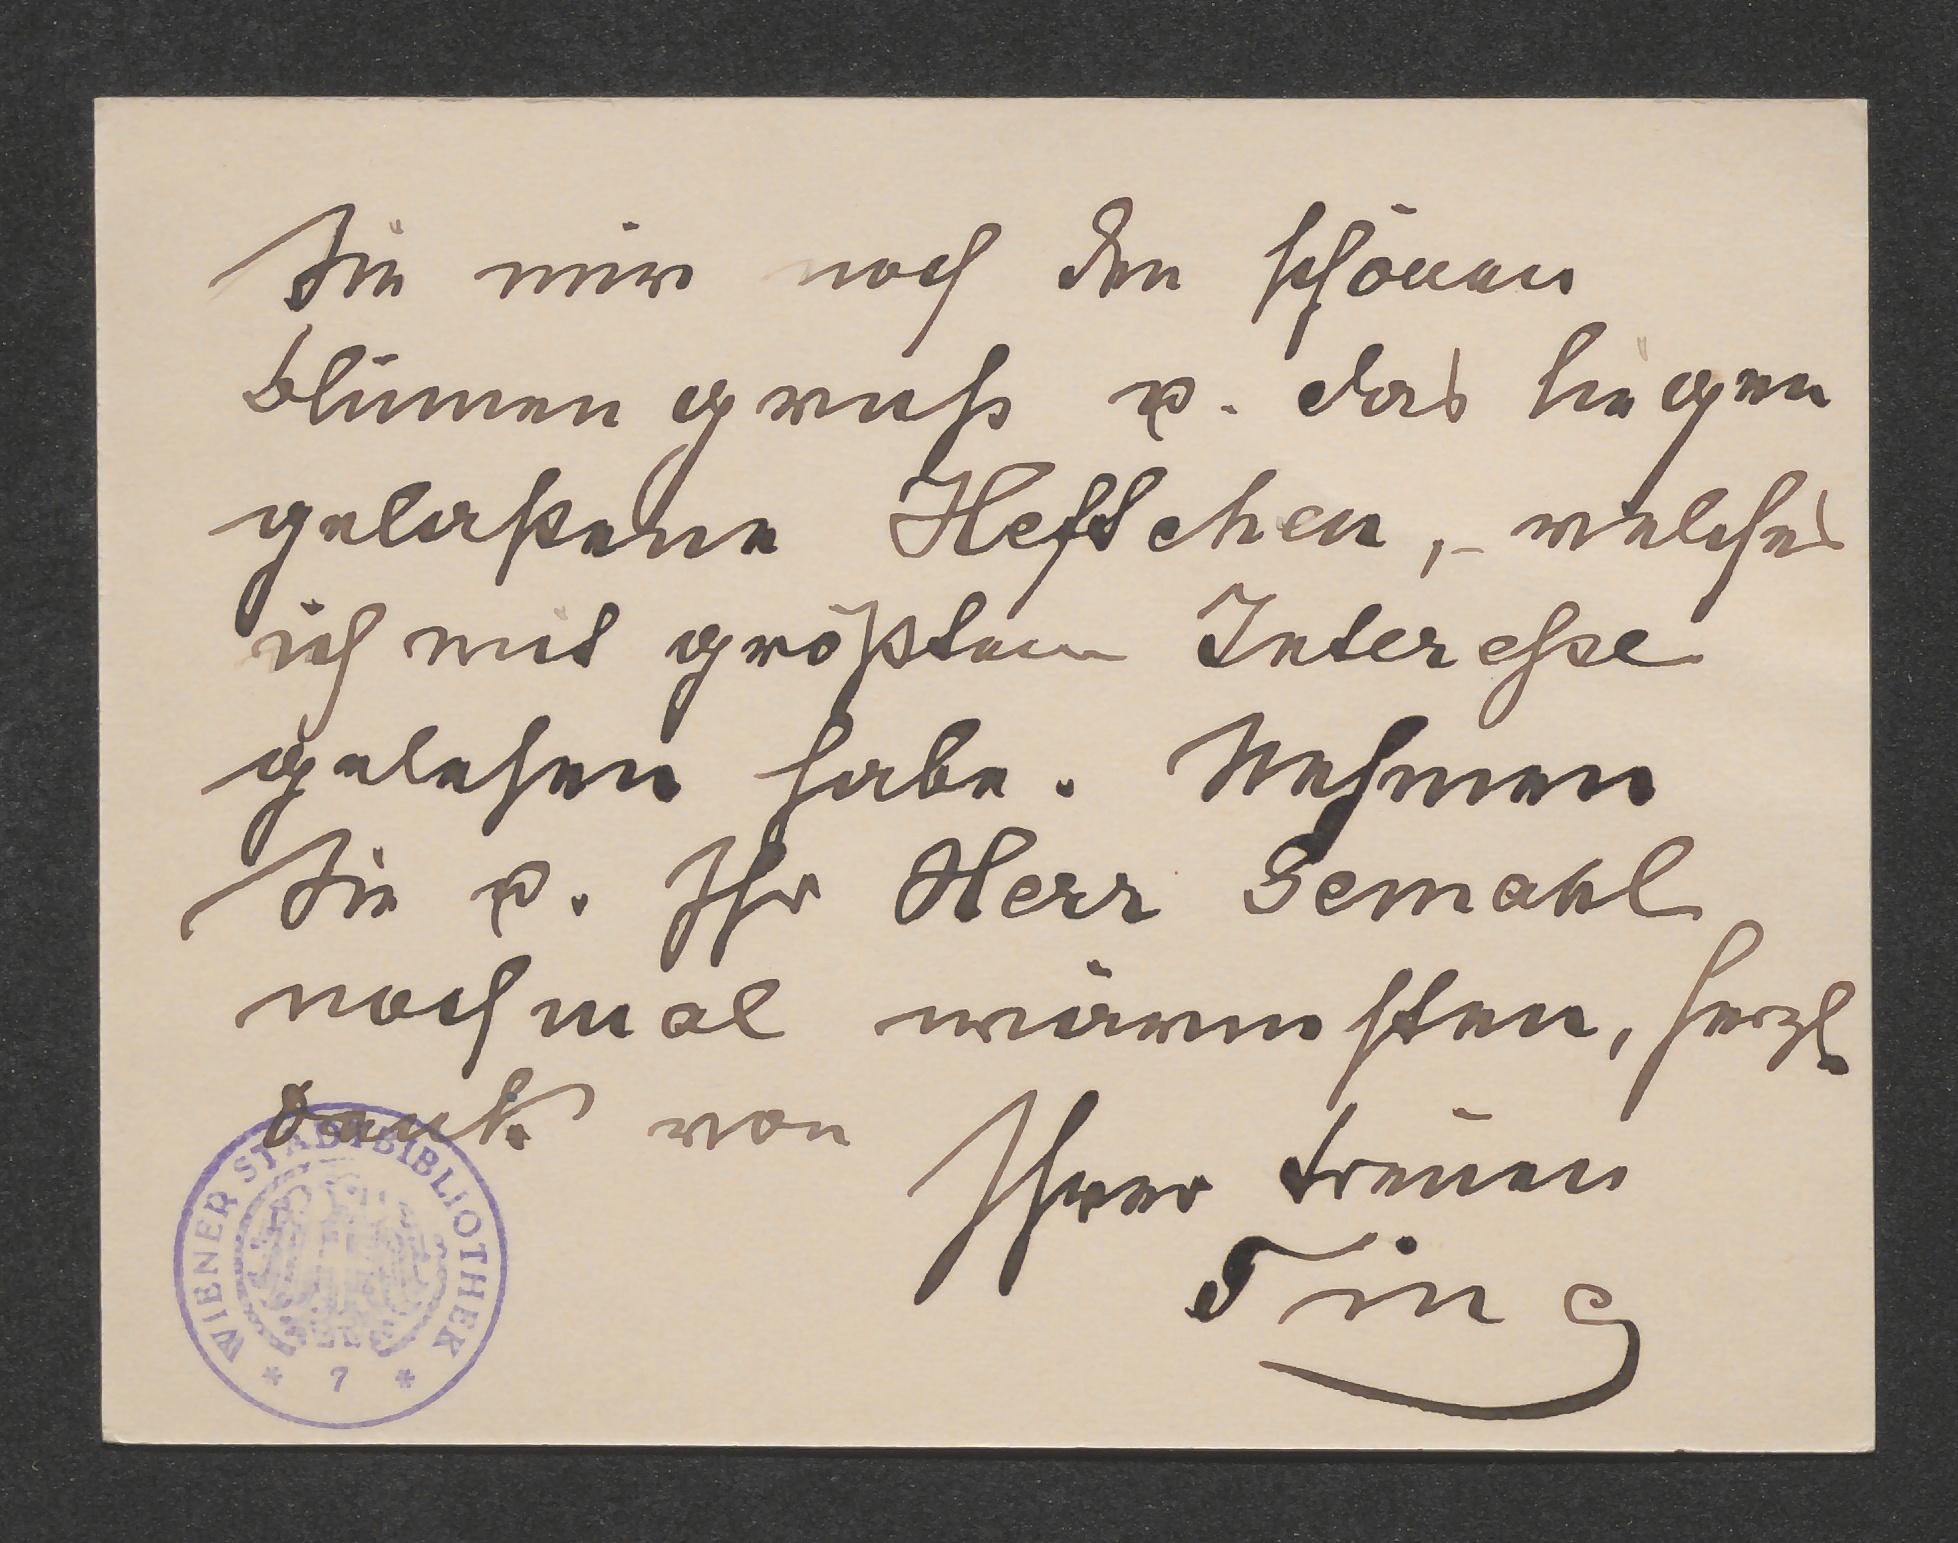 Sie mir noch den schönen
Blumengruß u. das liegen
gelaßene Heftchen, - welches
ich mit größtem Intereße
gelesen habe. Nehmen
Sie u. Ihr Herr Gemahl
nochmal wärmsten, herzl.
Dank von
Ihrer treuen
Tina
WIENER STADTBIBLIOTHEK
* 7 *